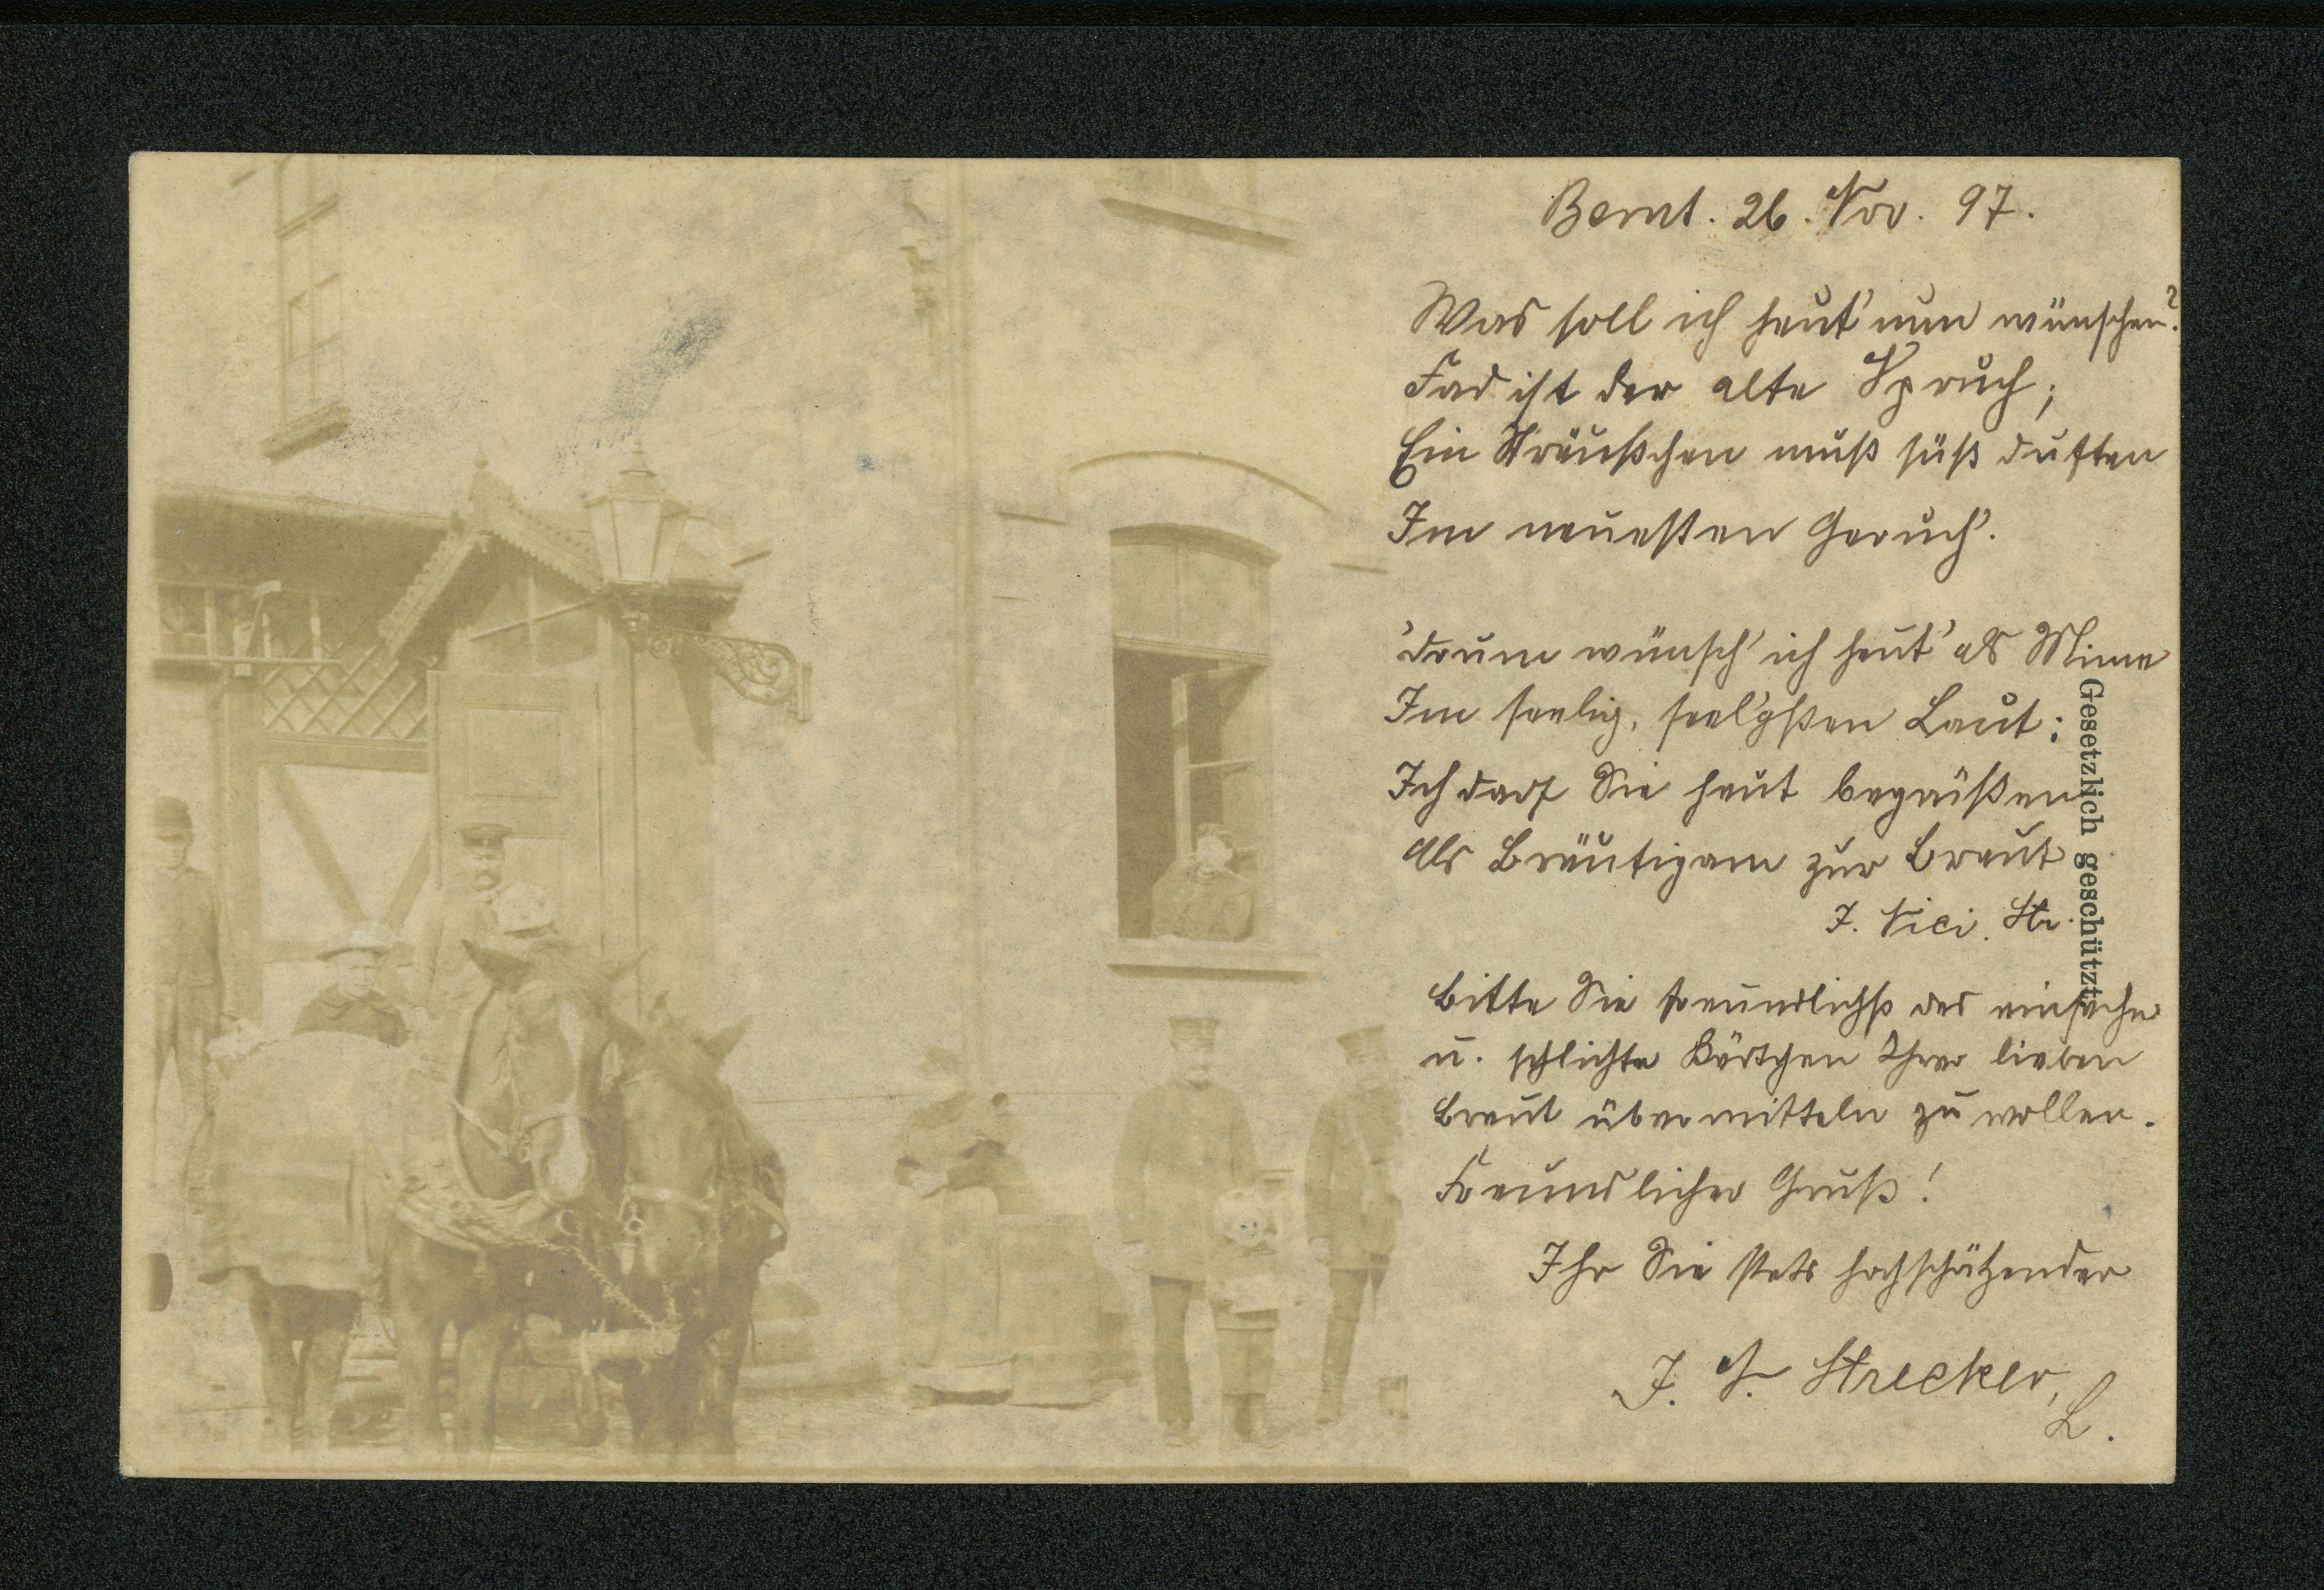 Bernt. 26. Nov. 97.
Was soll ich heut' nun wünschen?
Fad ist der alte Spruch;
Ein Sträußchen muß süß duften
Im neuesten Geruch'.
'drum wünsch' ich heut' als Mime
Im seelig, seel'gsten Laut:
Ich darf Sie heut begrüßen
Als Bräutigam zur Braut
J. Vici. Str.
Bitte Sie freundlichst das einfache
u. schlichte Kärtchen Ihrer lieben
Braut übermitteln zu wollen.
Freundlicher Gruß!
Ihr Sie stets hochschätzender
J. V. Strecker, L.
Gesetzlich geschützt.